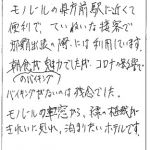 モノレールの県庁前駅に近くて
便利で、ていねいな接客で
那覇出張の際には利用しています。
朝食が魅力でしたが、コロナの影響で
のバイキング
バイキングがないのは残念でした。
モノレールの車窓から、緑の植栽が
きれいに見れ、泊まりたいホテルです。